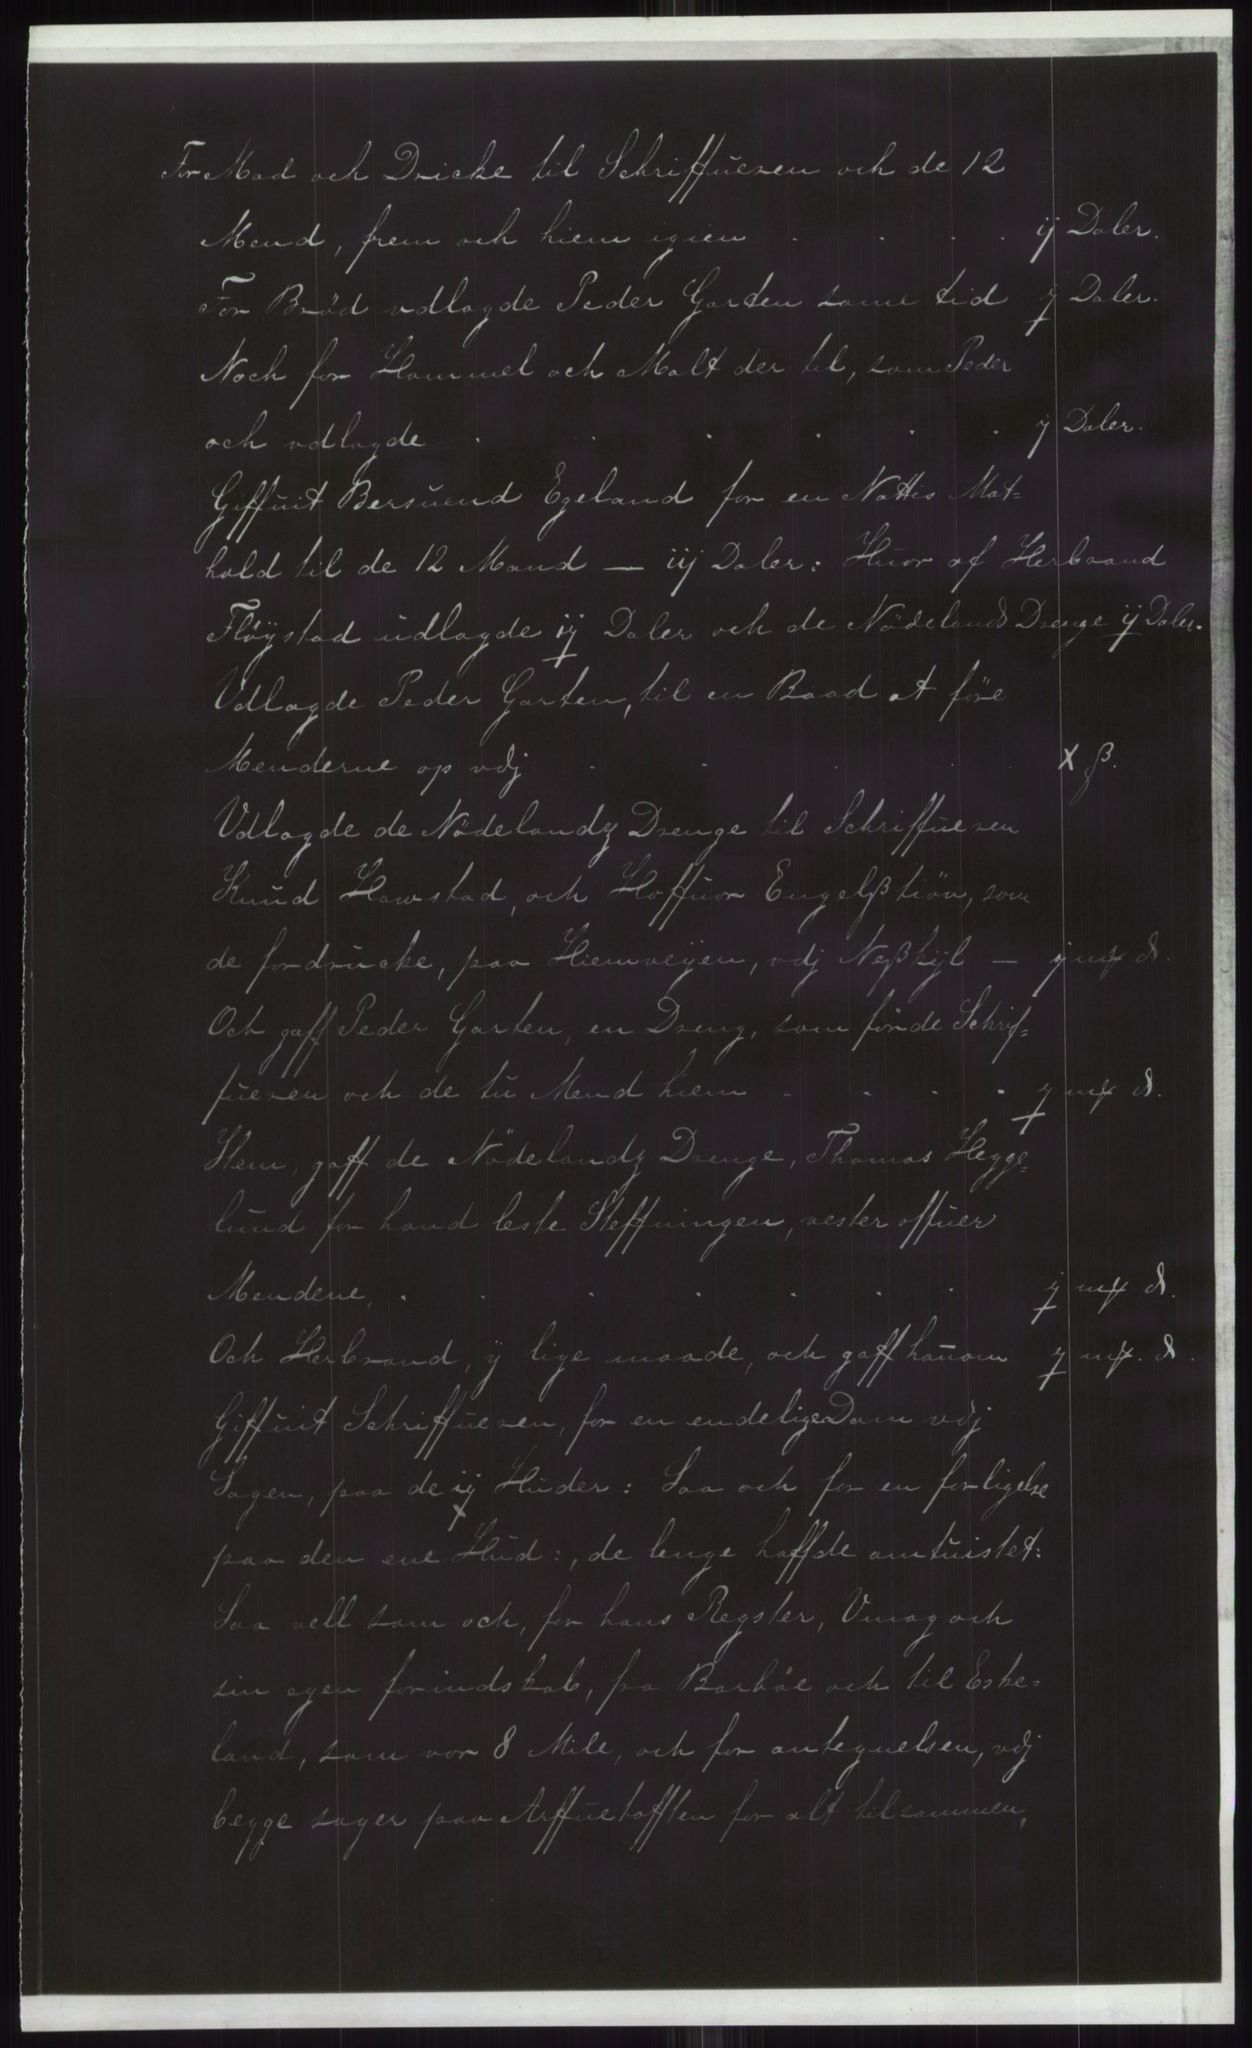 For Mad och Dricke til Schriffueren och de 12
Mend, frem och hiem igien . . . . ij Daler.
For Brød vdlagde Peder Garten same tid j Daler.
Noch for Hommel och Malt der til, som Peder
och vdlagde . . . . . . j Daler.
Giffuit Bersuend Egeland for en Nattis Mat=
hold til de 12 Mand — iij Daler: Huor af Herbrand
Fløystad udlagde ij Daler och de Nødelands Drenge ij Daler.
Vdlagde Peder Garten, til en Baad at føre
Menderne op vdj . . . . . x ß.
Vdlagde de Nødelandz Drenge til Schriffueren
Knud Hawstad, och Hoffuor Engelßtiøn, som
de fordrucke, paa Hiemveÿen, vdj Neßkijl — j mȹ d.
Och gaff Peder Garten, en Dreng, som førde Schrif=
fueren och de tu Mend hiem . . . . j mȹ d.
Item, gaff de Nødelandz Drenge, Thomas Hegge=
lund for hand leste Steffningen, vester offuer
Mendene, . . . . . . . j mȹ d.
Och Herbrand, ÿ lige maade, och gaff hanom j mȹ. d.
Giffuit Schriffueren, for en endelige Dom vdj
Sagen, paa de ij Huder: Saa och for en forligelse
paa den ene Hud:, de lenge haffde omtuistet:
Saa vell som och, for hans Regster, Vmag och
sin egen forindskab, fra Barbøe och til Eske=
land, som vor 8 Mile, och for antegnelsen, vdj
begge sager paa Arffuetafften for alt tilsammen,